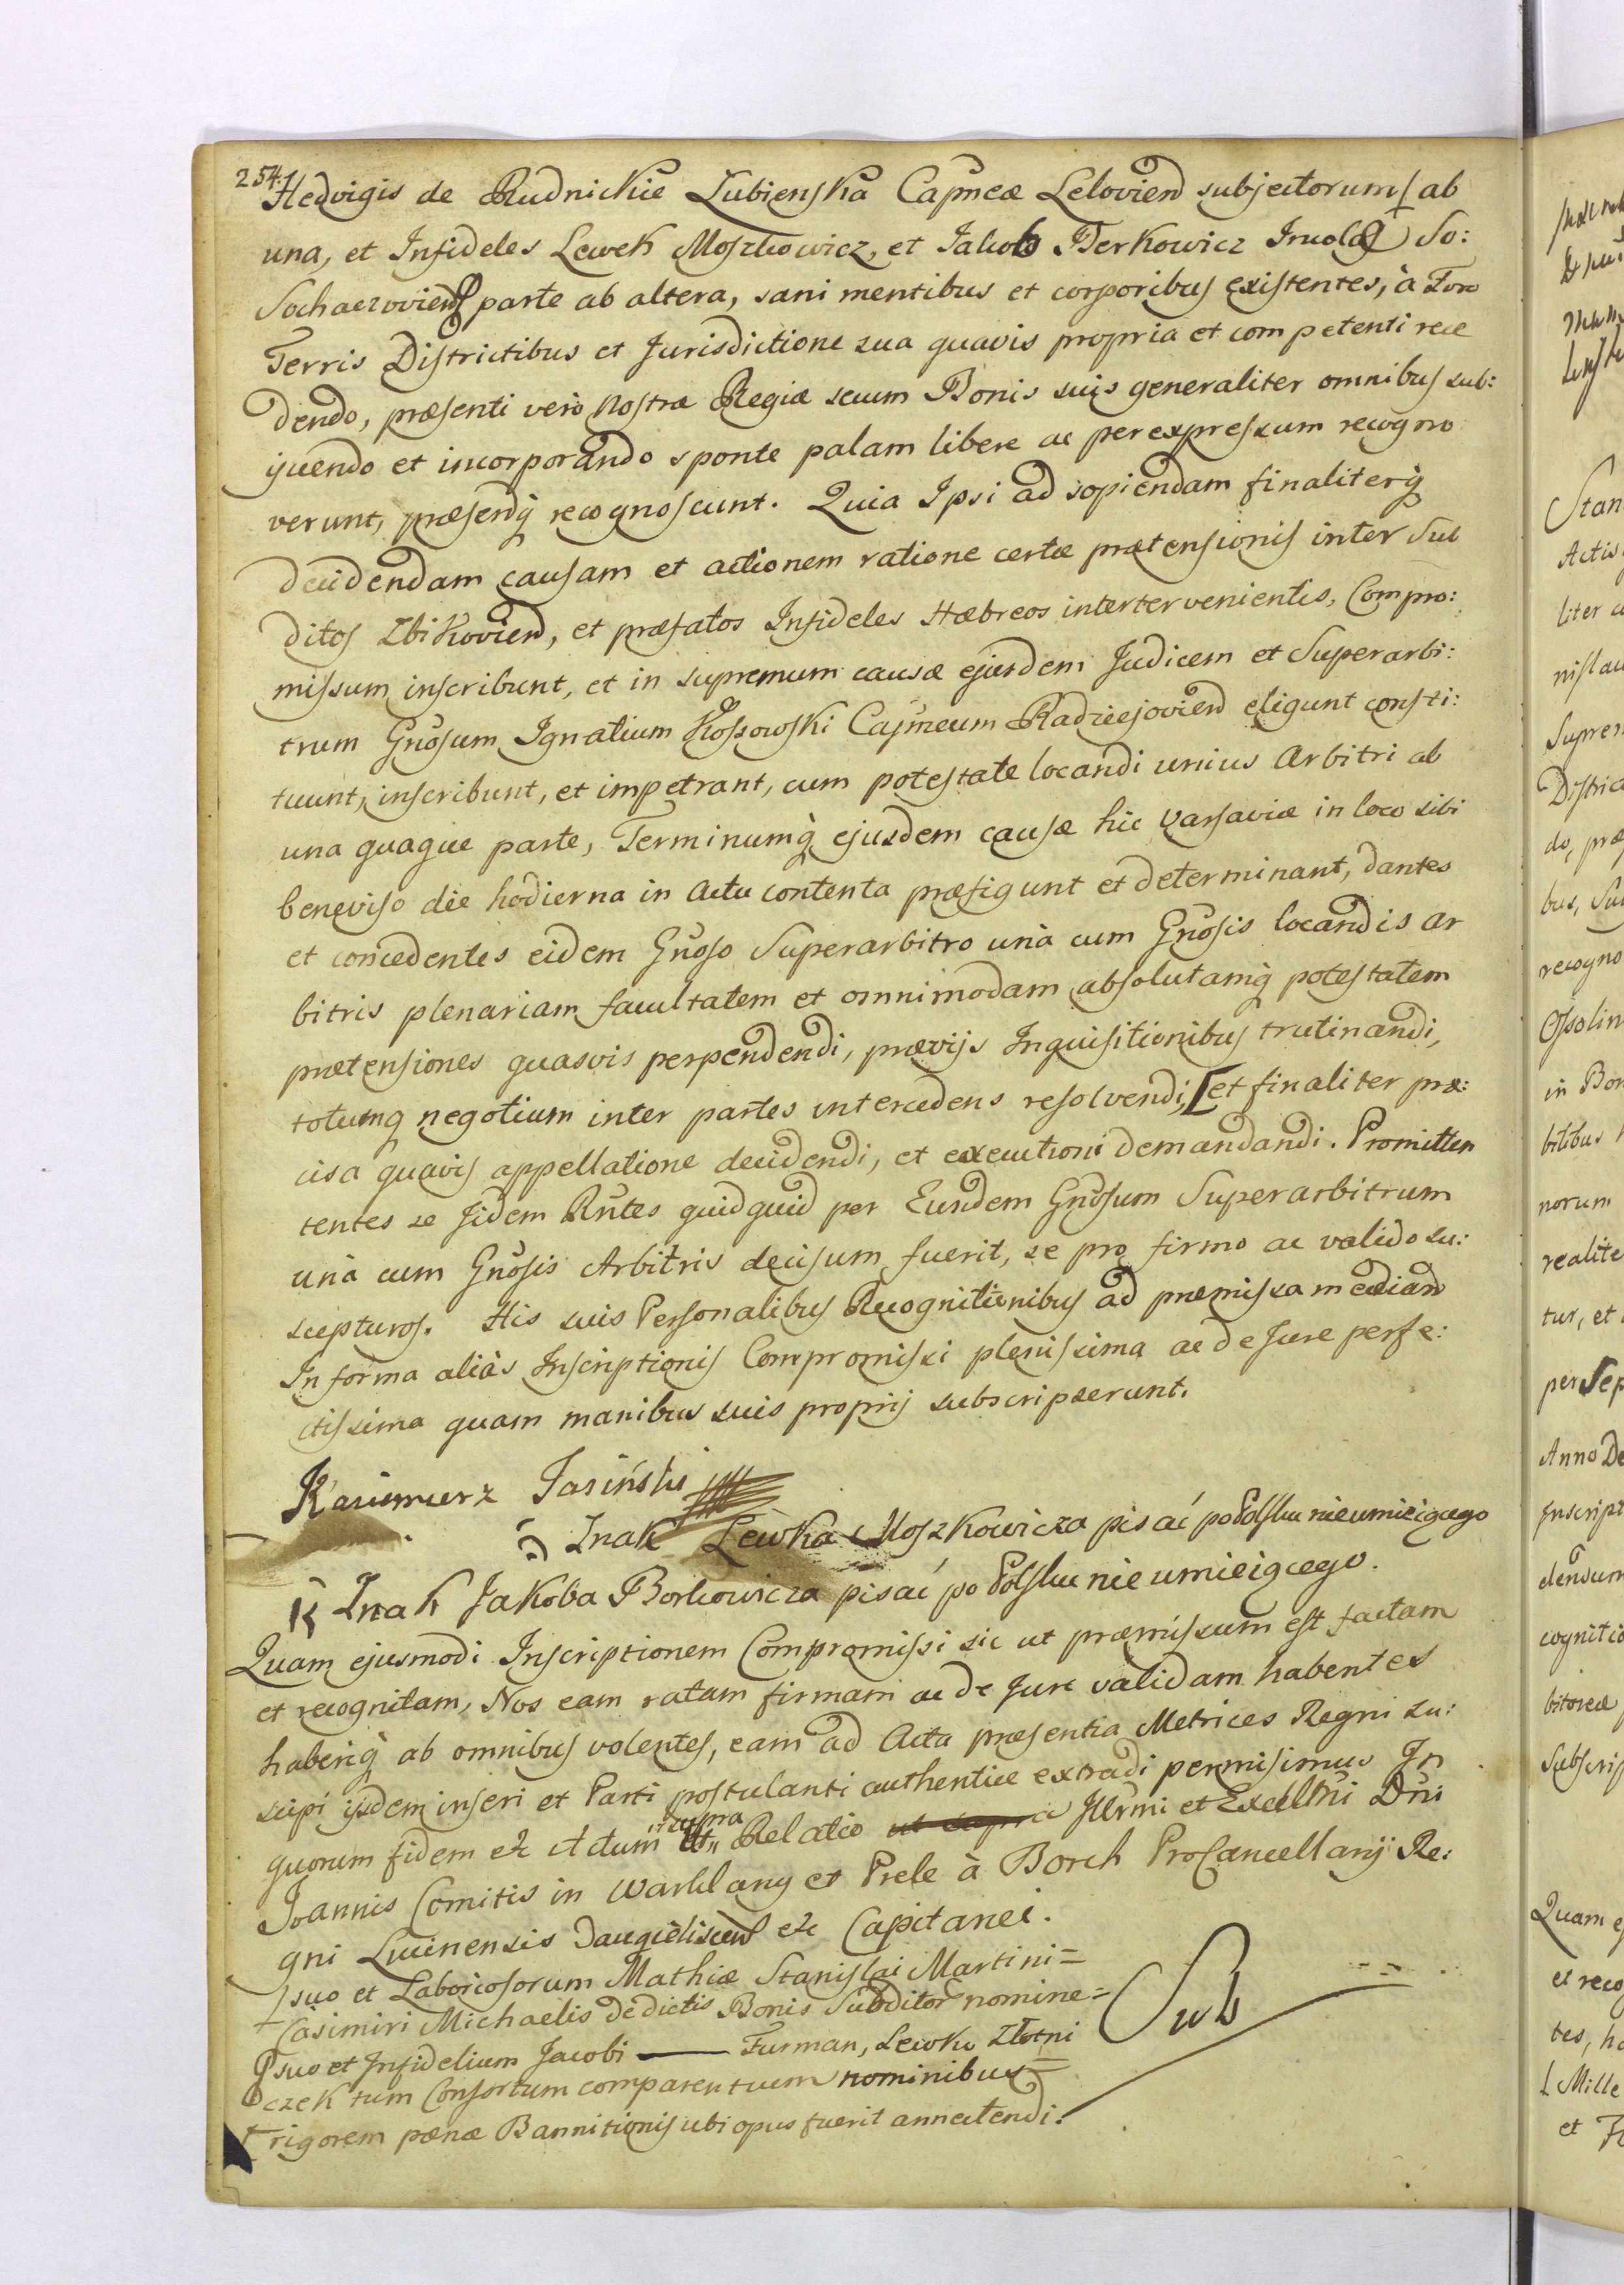 254.
Hedvigis de Rudnickie Lubienska Capnea Lelovien subjectorum ab
una, et Infideles Lewek Moszkowicz, et Jakob Berkowicz Incolæ So:
Sochaczovien parte ab altera, sani mentibus et corporibus existentes, à Foro
Terris Districtibus et Jurisdictione sua quavis propria et competenti rece
dendo, præsenti verò Nostræ Regiæ seeum Bonis suis generaliter omnibus sub:
ijciendo et incorporando sponte palam libere ac per expressum recogno
verunt, præsenq recognoscunt. Quia Ipsi ad sopiendam finaliterq
decidendam causam et actionem ratione certæ prætensionis inter Sub
ditos Zbikovien, et præfatos Infideles Hæbreos intertervenientis, Compro:
missum inscribunt, et in supremum causæ ejusdem Judicem et Superarbi:
trum Gnosum Ignatium Kossowski Capneum Radziejovien eligunt consti:
tuunt, inscribunt, et impetrant, cum potestate locandi unius Arbitri ab
una quaque parte, Terminumq ejusdem causæ hic Varsaviæ in loco sibi
beneviso die hodierna in Actu contenta præfigunt et determinant, dantes
et concedentes eidem Gnoso Superarbitro unà cum Gnosis locandis Ar
bitris plenariam facultatem et omnimodam absolutamq potestatem
prætensiones quasvis perpendendi, prævijs Inquisitionibus trutinandi,
totumq negotium inter partes intercedens resolvendi, [et finaliter præ:
cisa quavis appellatione decidendi, et executioni demandandi. Promitten
tentes se Iidem Rntes quidquid per Eundem Gnosum Superarbitrum
unà cum Gnosis Arbitris decisum fuerit, se pro firmo ac valido su:
scepturos. His suis Personalibus Recognitionibus ad præmissa median
In forma aliàs Inscriptionis Compromissi plenissima ac de Jure perfe:
ctissima quam manibus suis proprijs subscripserunt.
Kazimierz Jasiński
Znak Lewka Moszkowicza pisać po Polsku nieumieiącego
Znak Jakoba Borkowicza pisać po Polsku nie umieiącego.
Quam ejusmodi Inscriptionem Compromissi sic ut præmissum est factam
et recognitam, Nos eam ratam firmam ac de Jure validam habentes
haberiq ab omnibus volentes, eam ad Acta præsentia Metrices Regni su:
scipi ijsdem inseri et Parti postulanti authentice extradi permisimus In
quorum fidem etc Actum ut supra Relatio ut supra Illrmi et Excellmi Dni
Joannis Comitis in Warklany et Prele à Borch ProCancellarij Re:
gni Lucinensis Daugieliscen etc Capitanei.
suo et Laboriosorum Mathiæ Stanislai Martini=
Casimiri Michaelis de dictis Bonis Subditor nomine=
suo et Infidelium Jacobi — Furman, Lewku Złotni
czek tum Consortum comparentium nominibus=
rigorem pænæ Bannitionis ubi opus fuerit annectendi.
Sub
Stan
Actis
liter
Supren
Distric
do, præ
bus, Su
recogno
Ossolin
in Bon
bitibus
norum
realite
tur, et
per Sep
Anno De
Inscript
dendum
cognitio
Subscrip
Quam e
et reco
tes, ha
Mille
et